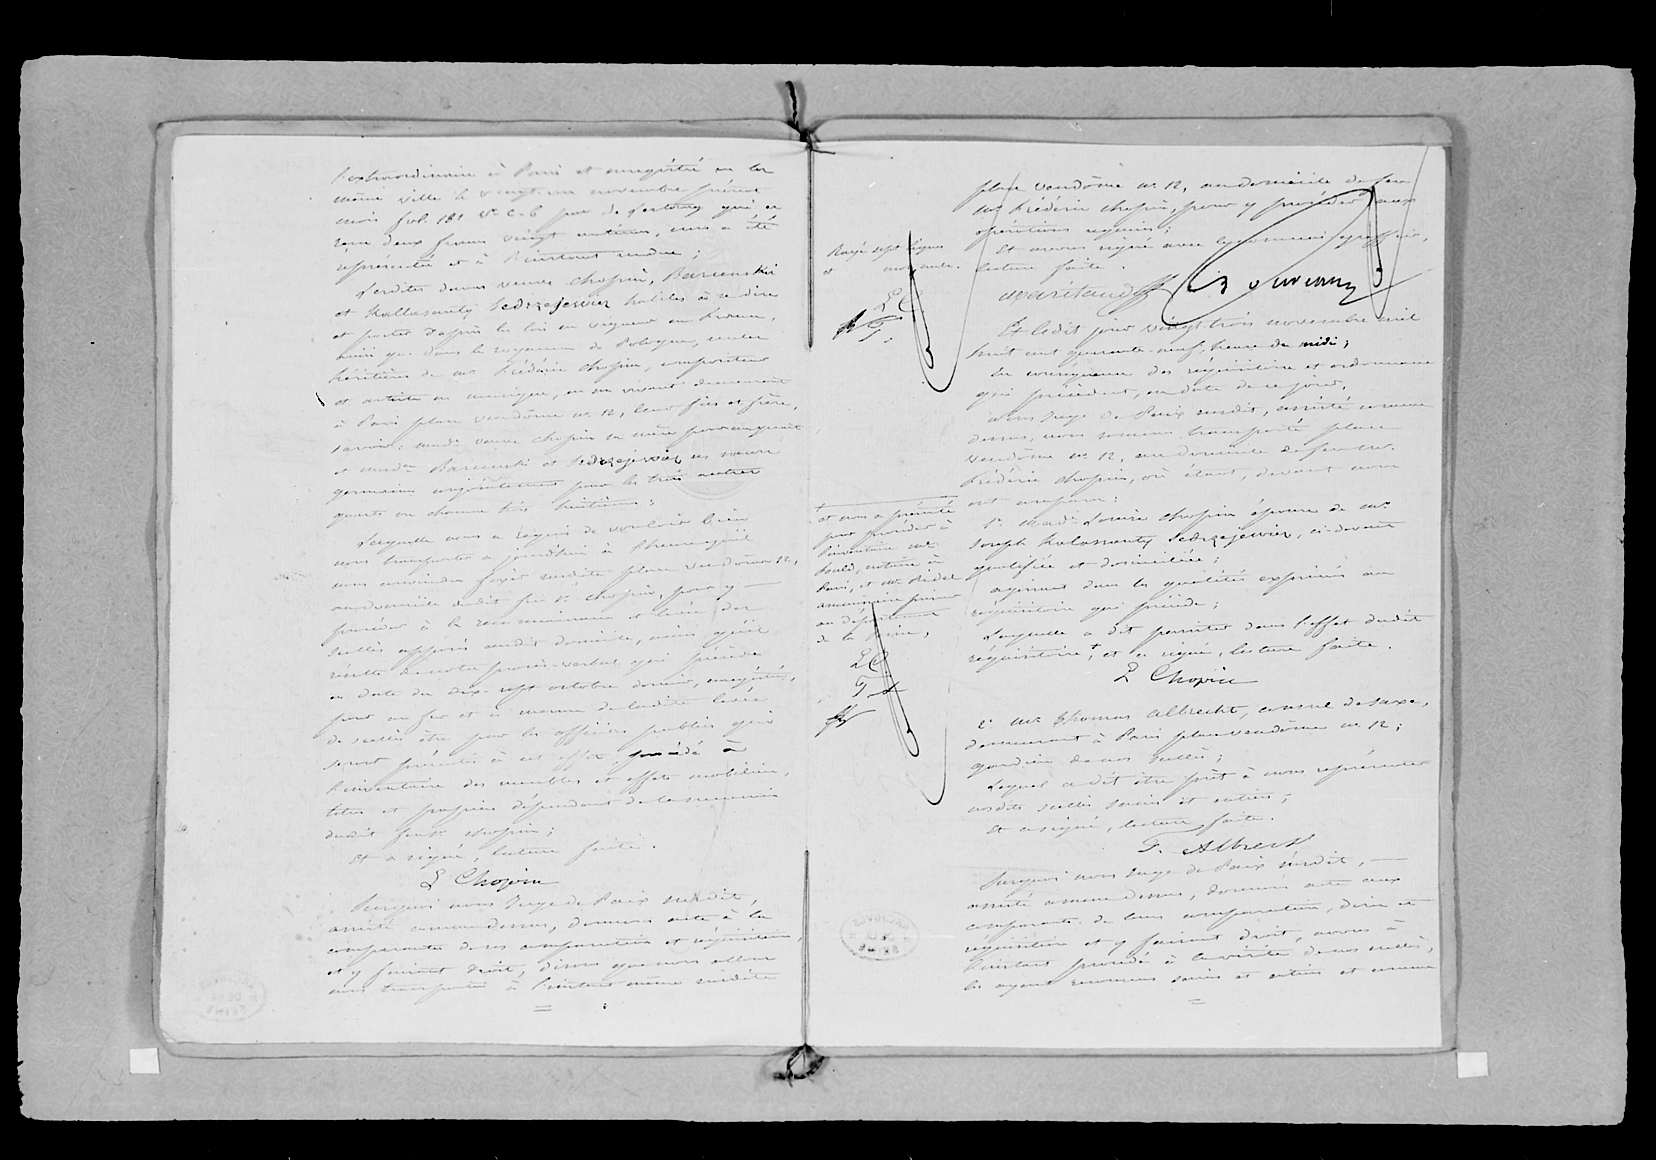 l'extraordinaire à Paris et enregistré en la
même ville le vingt un novembre présent
mois fol. 181 V° c. 6 par de Lestang qui a
reçu deux francs vingt centimes, nous a été
représentée et à l'instant rendue ;
Lesdites dames veuve Chopin, Barcinski
et Kallasanty Jedrzejewicz habiles à se dire
et porter d'après la loi en vigueur en France,
ainsi que dans le royaume de Pologne, seules
héritières de Mr. Frédéric Chopin, compositeur
et artiste en musique, en son vivant demeurant
à Paris place Vendôme n° 12, leur fils et frère,
savoir : made veuve Chopin sa mère pour un quart
et mesdes Barcinski et Jedrzejewicz ses sœurs
germaines conjointement pour les trois autres
quarts ou chacune
Laquelle nous a requis de vouloir bien
nous transporter aujourd'hui à l'heure qu'il
nous conviendra fixer susdite place Vendôme 12,
au domicile dudit feu Sr. Chopin, pour y
procéder à la reconnaissance et levée des
scellés apposés audit domicile, ainsi qu'il
résulte de notre procès-verbal qui précède
en date du dix-sept octobre dernier, enregistré,
pour au fur et à mesure de ladite levée
de scellés être par les officiers publics qui
seront présentés à cet effet procédé à
l'inventaire des meubles et effets mobiliers,
titres et papiers dépendant de la succession
dudit feu Sr. Chopin ;
Et a signé, lecture faite.
L Chopin
Surquoi nous Juge de Paix susdit,
assisté comme dessus, donnons acte à la
comparante de ses comparution et réquisitoire,
et y faisant droit, disons que nous allons
nous transporter à l'instant même susdite
Rayé sept lignes
et
LC
T.
+ et nous a présenté
pour procéder à
l'inventaire me
Gould, notaire à
Paris, et me Ridel
commissaire priseur
au département
de la Seine,
LC
T A
place Vendôme n° 12, au domicile de feu
Mr. Frédéric Chopin, pour y procéder aux
opérations requises ;
Et avons signé avec le commis greffier,
lecture faite.
Et ledit jour vingt-trois novembre mil
huit cent quarante-neuf, heure de midi ;
En conséquence des réquisitoire et ordonnance
qui précèdent, en date de ce jour,
Nous Juge de Paix susdit, assisté comme
dessus, nous sommes transporté place
Vendôme n° 12, au domicile de feu Mr.
Frédéric Chopin, où étant, devant nous
ont comparu :
1° Made Louise Chopin épouse de Mr
Joseph Kalassanty Jedrzejewicz, ci-devant
qualifiée et domiciliée ;
agissant dans les qualités exprimées au
réquisitoire qui précède ;
Laquelle a dit persister dans l'effet dudit
réquisitoire +, et a signé, lecture faite.
L Chopin
2° Mr Thomas Albrecht, consul de Saxe,
demeurant à Paris place Vendôme n° 12 ;
gardien de nos scellés ;
Lequel a dit être prêt à nous représenter
nosdits scellés sains et entiers ;
Et a signé, lecture faite.
T. Albrecht
Surquoi nous Juge de Paix susdit,
assisté comme dessus, donnons acte aux
comparants de leurs comparution, dires et
réquisitoire et y faisant droit, avons à
l'instant procédé à la visite de nos scellés,
les ayant reconnus sains et entiers et comme